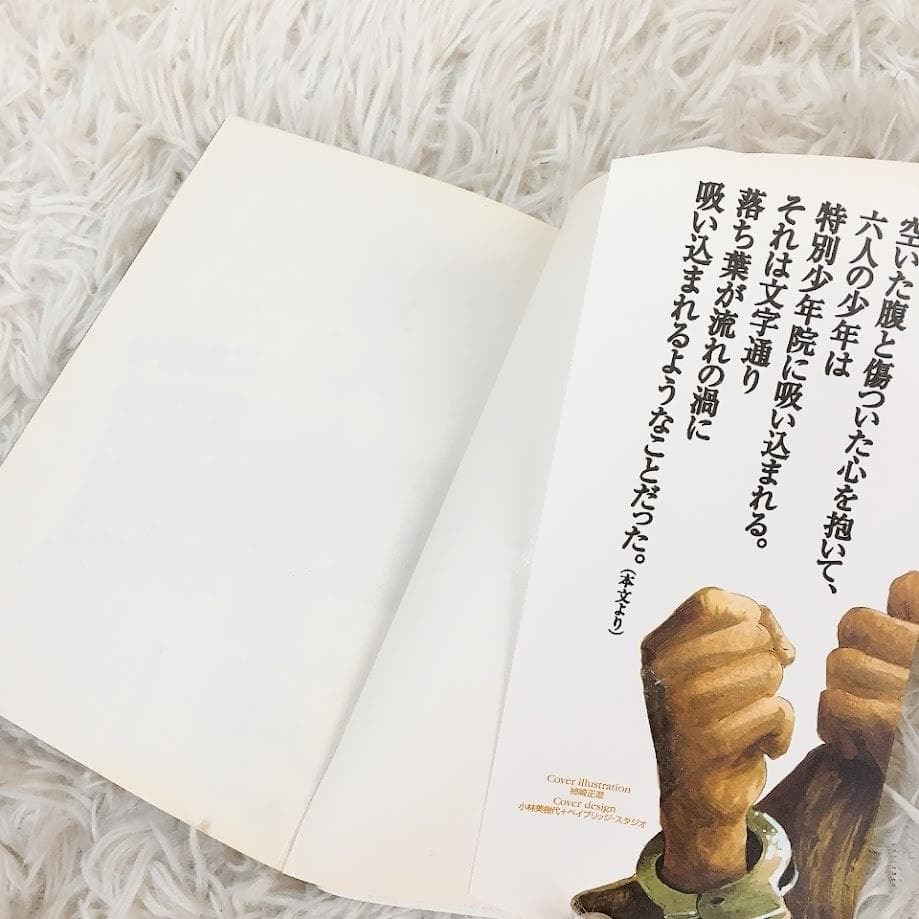 空いた腹と傷ついた心を抱いて、
六人の少年は
特別少年院に吸い込まれる。
それは文字通り
落ち葉が流れの渦に
吸い込まれるようなことだった。
(本文より)
Cover illustration
柿崎正澄
Cover design
小林美樹代+ベイブリッジ・スタジオ